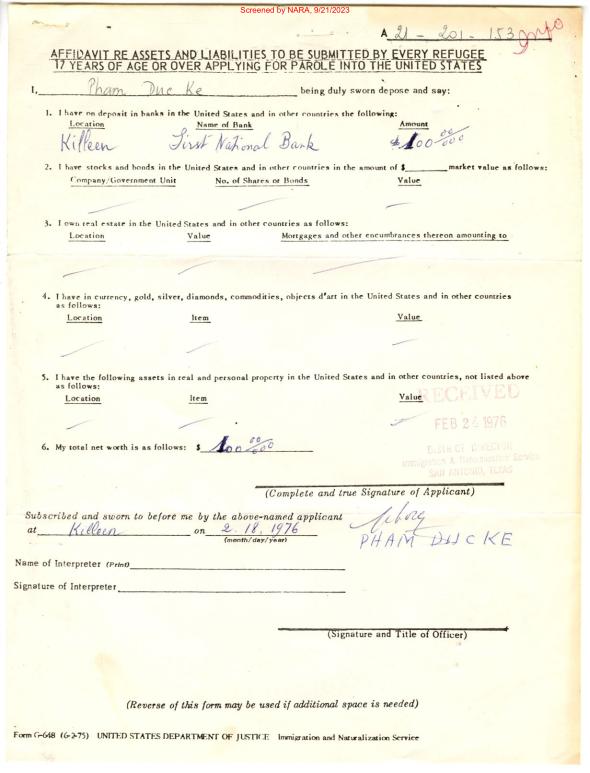 Screened by NARA, 9/21/2023
A 21 - 201 - 153
AFFIDAVIT RE ASSETS AND LIABILITIES TO BE SUBMITTED BY EVERY REFUGEE
17 YEARS OF AGE OR OVER APPLYING FOR PAROLE INTO THE UNITED STATES
I, Pham Duc Ke being duly sworn depose and say:
1. I have on deposit in banks in the United States and in other countries the following:
Location Name of Bank Amount
Killeen First National Bank $100 00/000
2. I have stocks and bonds in the United States and in other countries in the amount of $ market value as follows:
Company/Government Unit No. of Shares or Bonds Value
3. I own real estate in the United States and in other countries as follows:
Location Value Mortgages and other encumbrances thereon amounting to
4. I have in currency, gold, silver, diamonds, commodities, objects d'art in the United States and in other countries
as follows:
Location Item Value
5. I have the following assets in real and personal property in the United States and in other countries, not listed above
as follows:
Location Item Value
RECEIVED
FEB 24 1976
DISTRICT DIRECTOR
Immigration & Naturalization Service
SAN ANTONIO, TEXAS
6. My total net worth is as follows: $ 100 00/000
(Complete and true Signature of Applicant)
Subscribed and sworn to before me by the above-named applicant
at Killeen on 2.18.1976
(month/day/year)
PHAM DUC KE
Name of Interpreter (Print)
Signature of Interpreter
(Signature and Title of Officer)
(Reverse of this form may be used if additional space is needed)
Form G-648 (6-2-75) UNITED STATES DEPARTMENT OF JUSTICE Immigration and Naturalization Service